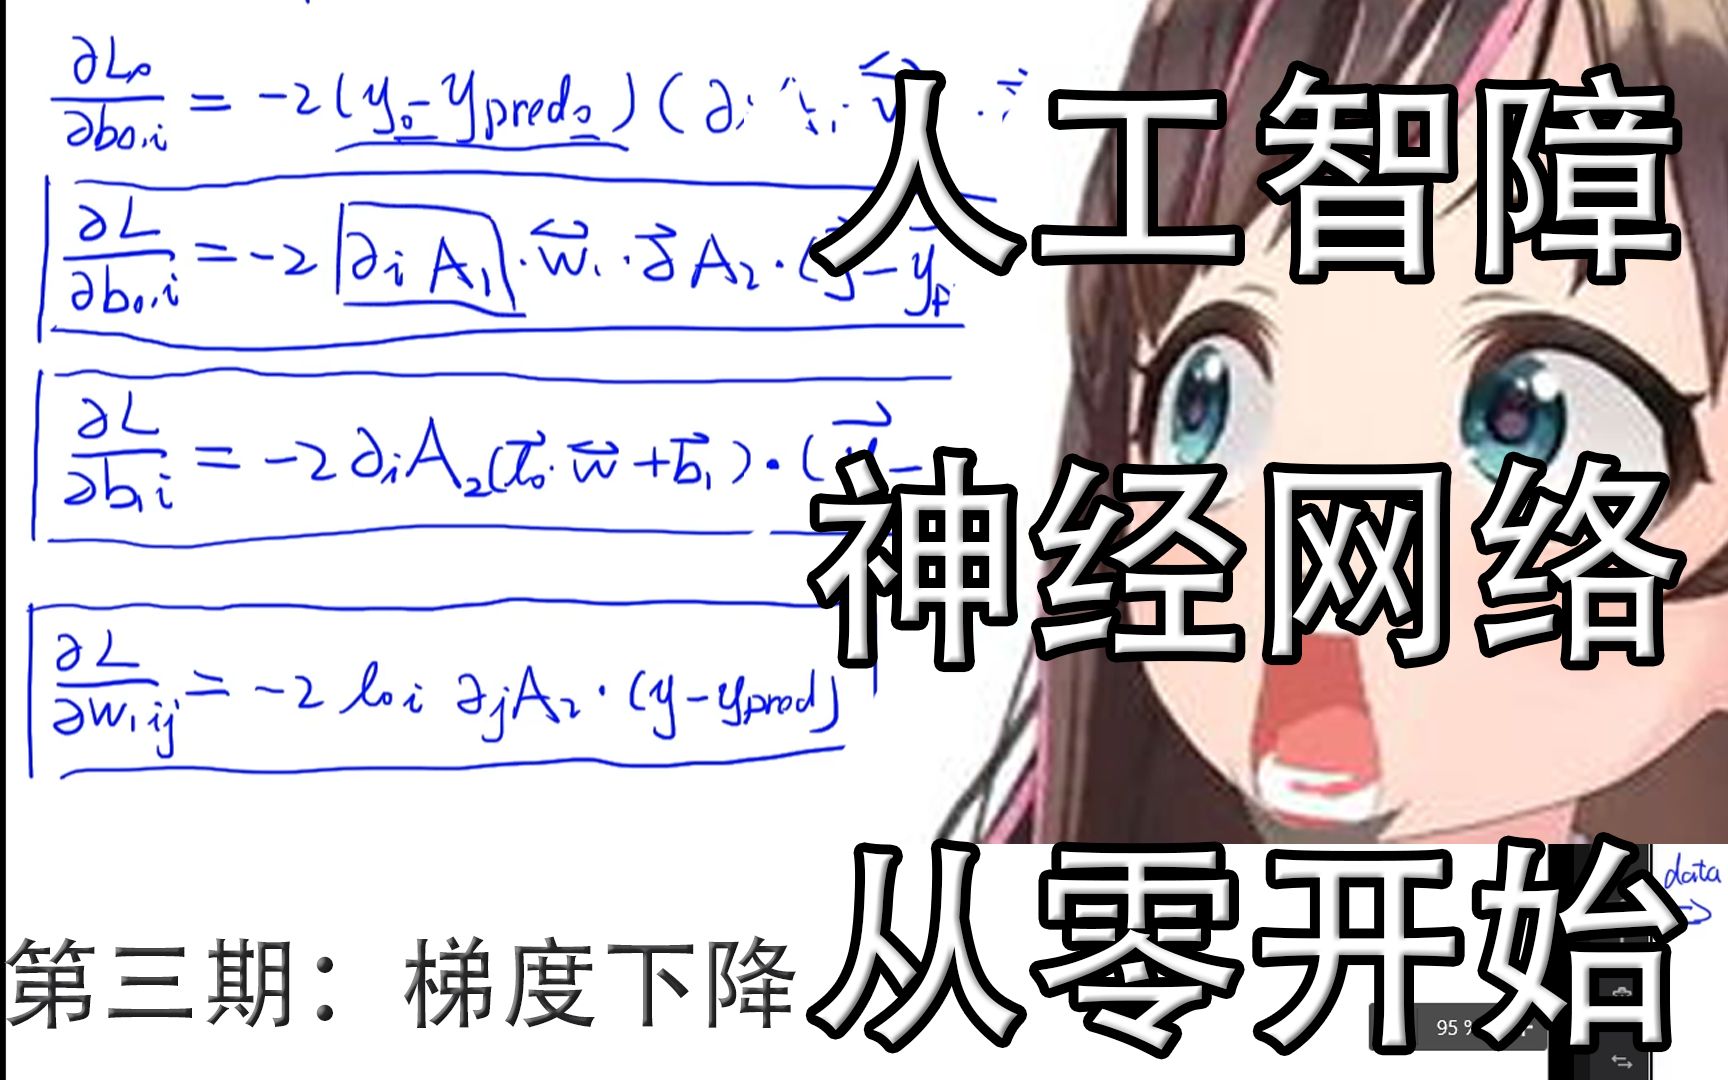 ∂L₀/∂b₀,ᵢ = -2(y₀ - y_pred₀)(∂ᵢ
∂L/∂b₀,ᵢ = -2 ∂ᵢA₁ · w⃡₁ · ∂⃗A₂ · (y⃗ - y⃗
∂L/∂b₁ᵢ = -2 ∂ᵢA₂(l⃗₀ · w⃡ + b⃗₁) · (y⃗ -
∂L/∂w₁ᵢⱼ = -2 l₀ᵢ ∂ⱼA₂ · (y - y_pred)
人工智障
神经网络
从零开始
第三期：梯度下降
data
95 %